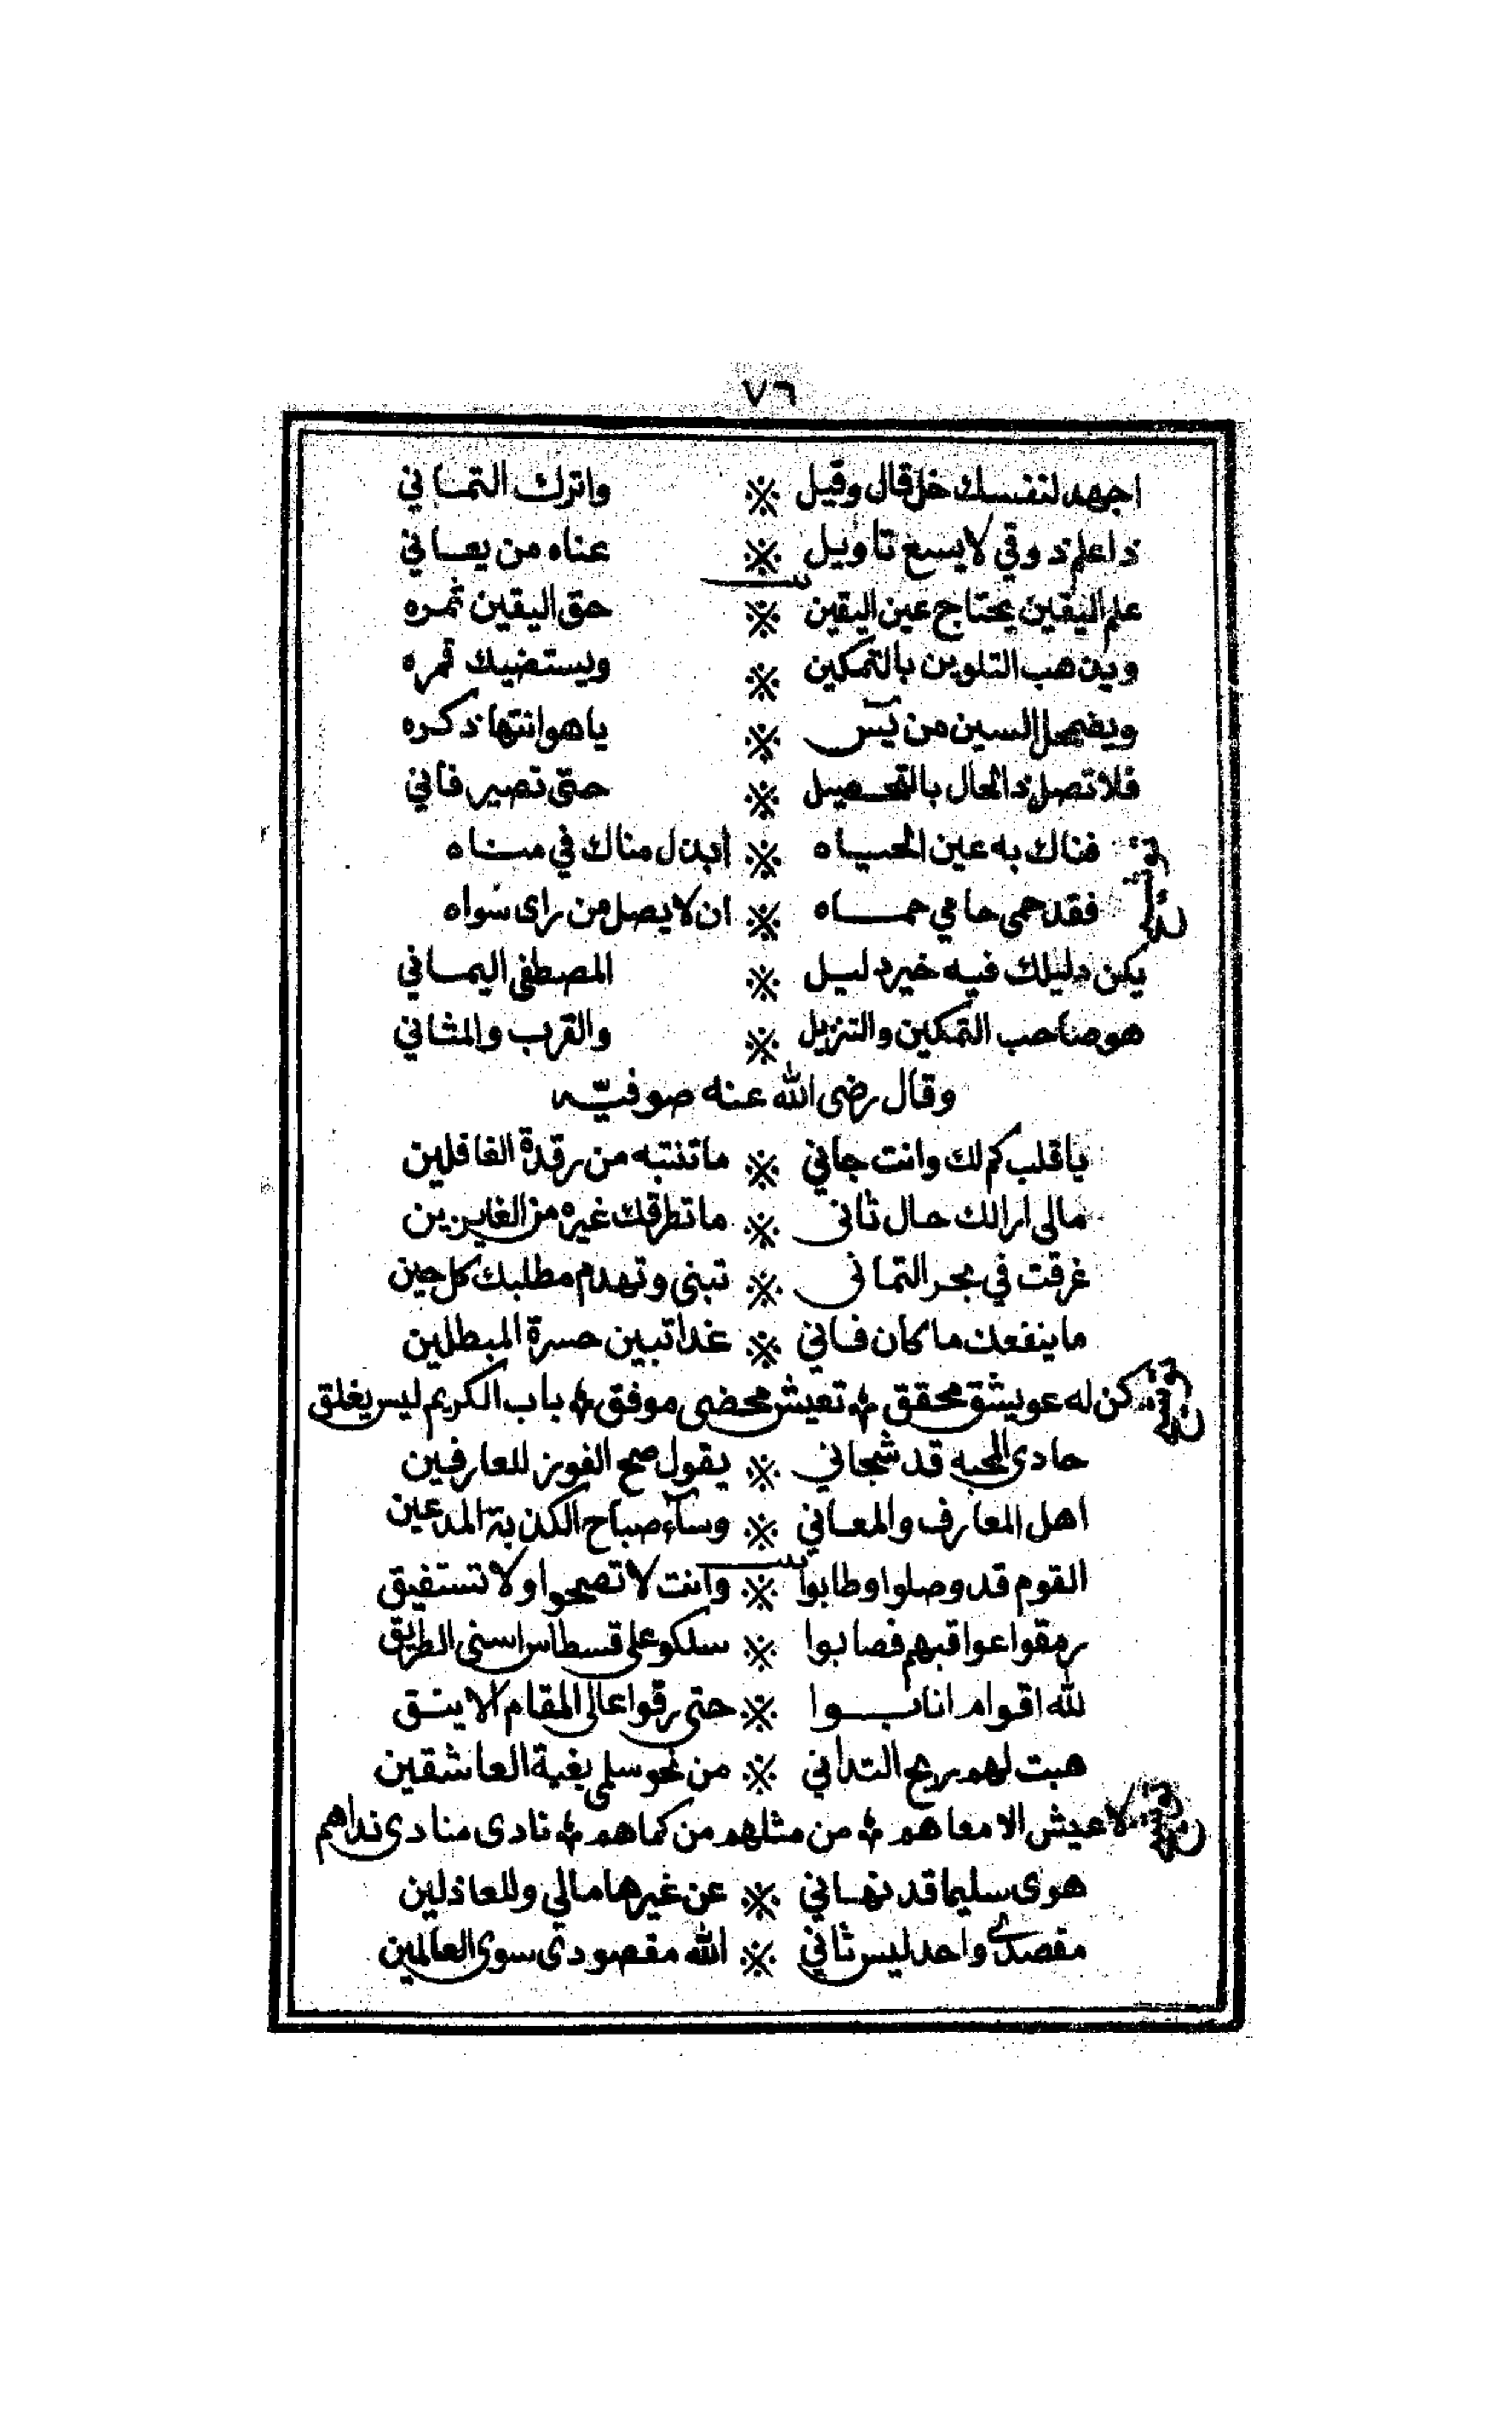 ٧٦
اجهد لنفسك خل قال وقيل ※ واترك التماني
ذا علم ذوقي لا يسع تاويل ※ عناه من يعاني
علم اليقين يحتاج عين اليقين ※ حق اليقين ثمره
ويذهب التلوين بالتمكين ※ ويستضيك قمره
ويضمحل السين من يس ※ ياهو انتها ذكره
فلا تصل ذا الحال بالتحصيل ※ حتى تصير فاني
فناك به عين الحياه ※ ابذل مناك في مناه
فقد حمى حامي حماه ※ ان لا يصل من راى سواه
يكن دليلك فيه خير دليل ※ المصطفى اليماني
هو صاحب التمكين والتنزيل ※ والقرب والمثاني
وقال رضى الله عنه صوفيه
ياقلب كم لك وانت جاني ※ ما تنتبه من رقدة الغافلين
مالى ارا لك حال ثانى ※ ما تطرقك غيره من الغايرين
غرقت في بحر التمانى ※ تبنى وتهدم مطلبك كل حين
ما ينفعك ما كان فاني ※ غدا تبين حسرة المبطلين
كن له عويشق محقق تعيش محضى موفق باب الكريم ليس يغلق
حادى المحبه قد شجاني ※ يقول صح الفوز للعارفين
اهل المعارف والمعاني ※ وسآء صباح الكذبة المدعين
القوم قد وصلوا وطابوا ※ وانت لا تصحوا ولا تستفيق
رمقوا عواقبهم فصابوا ※ سلكو على قسطاس اسنى الطريق
لله اقوام انابوا ※ حتى رقوا عالى المقام الانيق
هبت لهم ريح التداني ※ من نحو سلمى بغية العاشقين
لا عيش الا معاهم من مثلهم من كماهم نادى منادى نداهم
هوى سليما قد نهاني ※ عن غيرها مالي وللعاذلين
مقصدي واحد ليس ثاني ※ الله مقصودى سوى العالمين